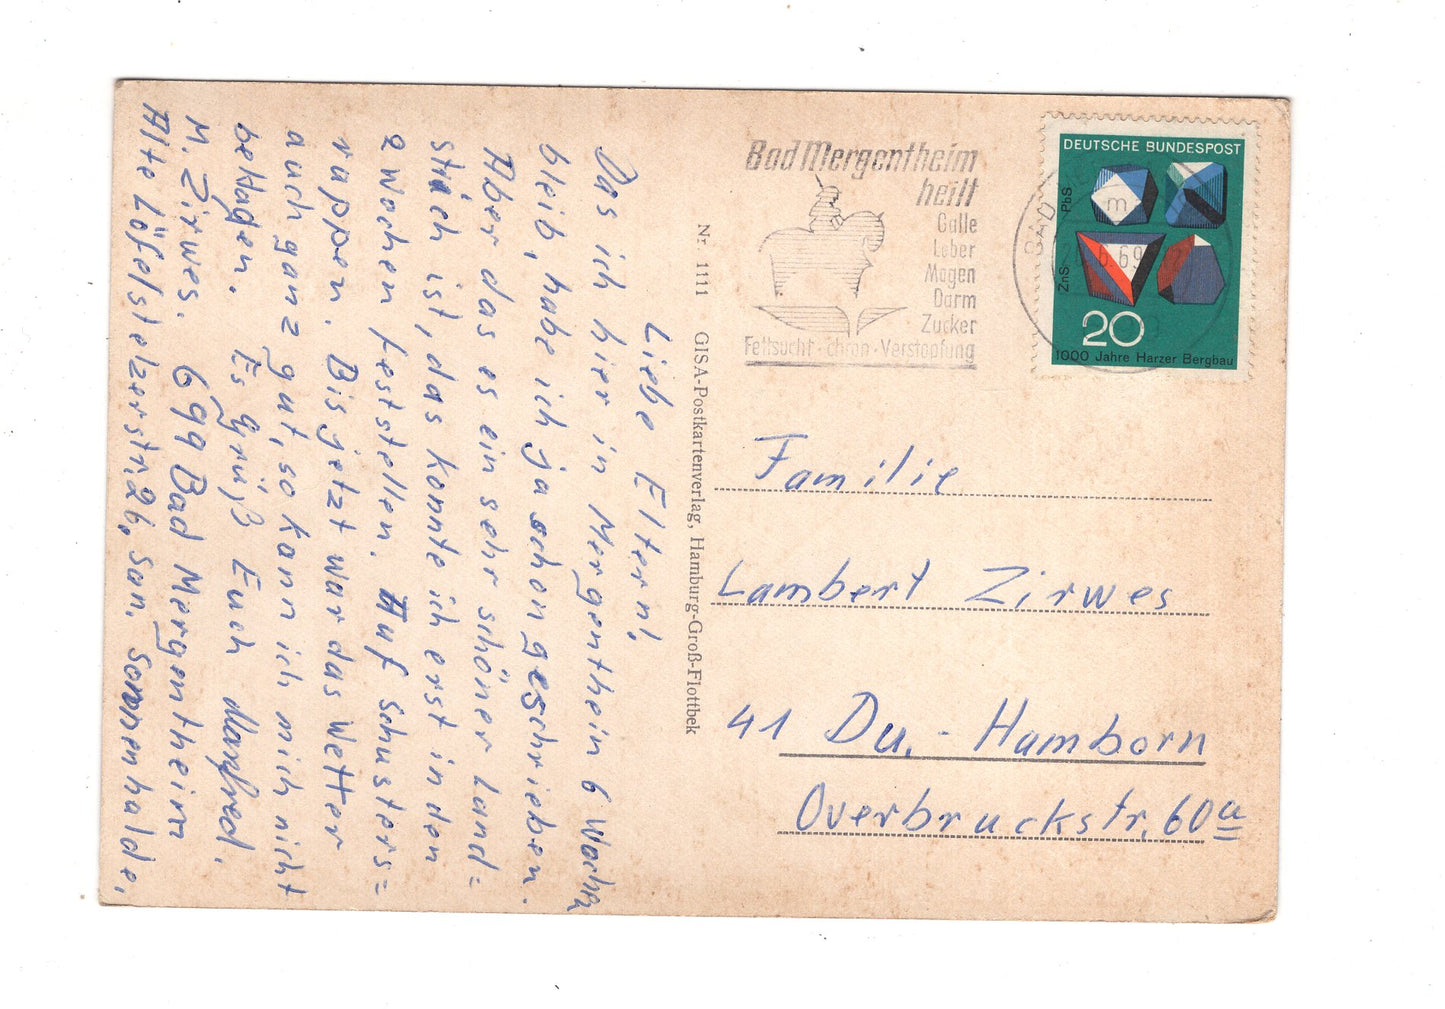 Liebe Eltern!,
Das ich hier in Mergentheim 6 Wochen
bleib, habe ich ja schon geschrieben.
Aber das es ein sehr schöner Land=
strich ist, das konnte ich erst in den
2 Wochen feststellen. Auf Schusters=
rappen. Bis jetzt war das Wetter
auch ganz gut, so kann ich mich nicht
beklagen. Es grüßt Euch Manfred.
M. Zirwes. 699 Bad Mergentheim
Alte Löfelstelzerstr. 26, San. Sonnenhalde.
Nr. 1111 GISA-Postkartenverlag, Hamburg-Groß-Flottbek
Bad Mergentheim
heilt
Galle
Leber
Magen
Darm
Zucker
Fettsucht · chron · Verstopfung
BAD
m
6.69
DEUTSCHE BUNDESPOST
PbS
ZnS
20
1000 Jahre Harzer Bergbau
Familie
Lambert Zirwes
41 Du.- Hamborn
Overbruckstr. 60a